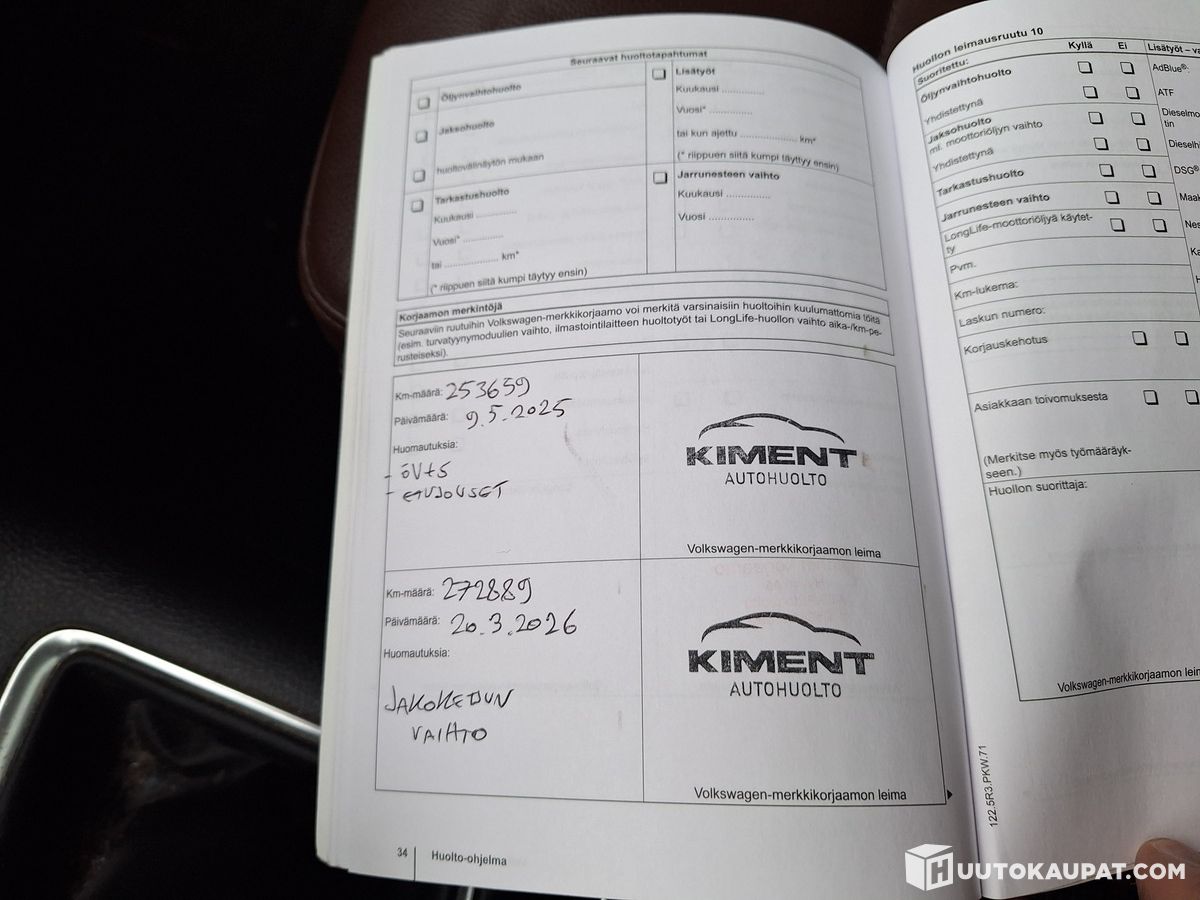 Seuraavat huoltotapahtumat
Öljynvaihtohuolto
Jaksohuolto
huoltovälinäytön mukaan
Tarkastushuolto
Kuukausi ..............
Vuosi* ..............
tai .................... km*
(* riippuen siitä kumpi täytyy ensin)
Lisätyöt
Kuukausi ..............
Vuosi* ..............
tai kun ajettu .................... km*
(* riippuen siitä kumpi täyttyy ensin)
Jarrunesteen vaihto
Kuukausi ..............
Vuosi ..............
Korjaamon merkintöjä
Seuraaviin ruutuihin Volkswagen-merkkikorjaamo voi merkitä varsinaisiin huoltoihin kuulumattomia töitä
(esim. turvatyynymoduulien vaihto, ilmastointilaitteen huoltotyöt tai LongLife-huollon vaihto aika-/km-pe-
rusteiseksi).
Km-määrä: 253659
Päivämäärä: 9.5.2025
Huomautuksia:
- ÖV+S
- ETUJOUSET
KIMENT
AUTOHUOLTO
Volkswagen-merkkikorjaamon leima
Km-määrä: 272889
Päivämäärä: 20.3.2026
Huomautuksia:
JAKOHEDUN
VAIHTO
KIMENT
AUTOHUOLTO
Volkswagen-merkkikorjaamon leima
34 Huolto-ohjelma
Huollon leimausruutu 10
Suoritettu: Kyllä Ei Lisätyöt – va
Öljynvaihtohuolto
Yhdistettynä
Jaksohuolto
ml. moottoriöljyn vaihto
Yhdistettynä
Tarkastushuolto
Jarrunesteen vaihto
LongLife-moottoriöljyä käytet-
ty
Pvm.
Km-lukema:
Laskun numero:
Korjauskehotus
Asiakkaan toivomuksesta
(Merkitse myös työmääräyk-
seen.)
Huollon suorittaja:
AdBlue®:
ATF
Dieselmo
tin
Dieselh
DSG®
Maa
Nes
Ka
H
Volkswagen-merkkikorjaamon leim
122.5R3.PKW.71
HUUTOKAUPAT.COM